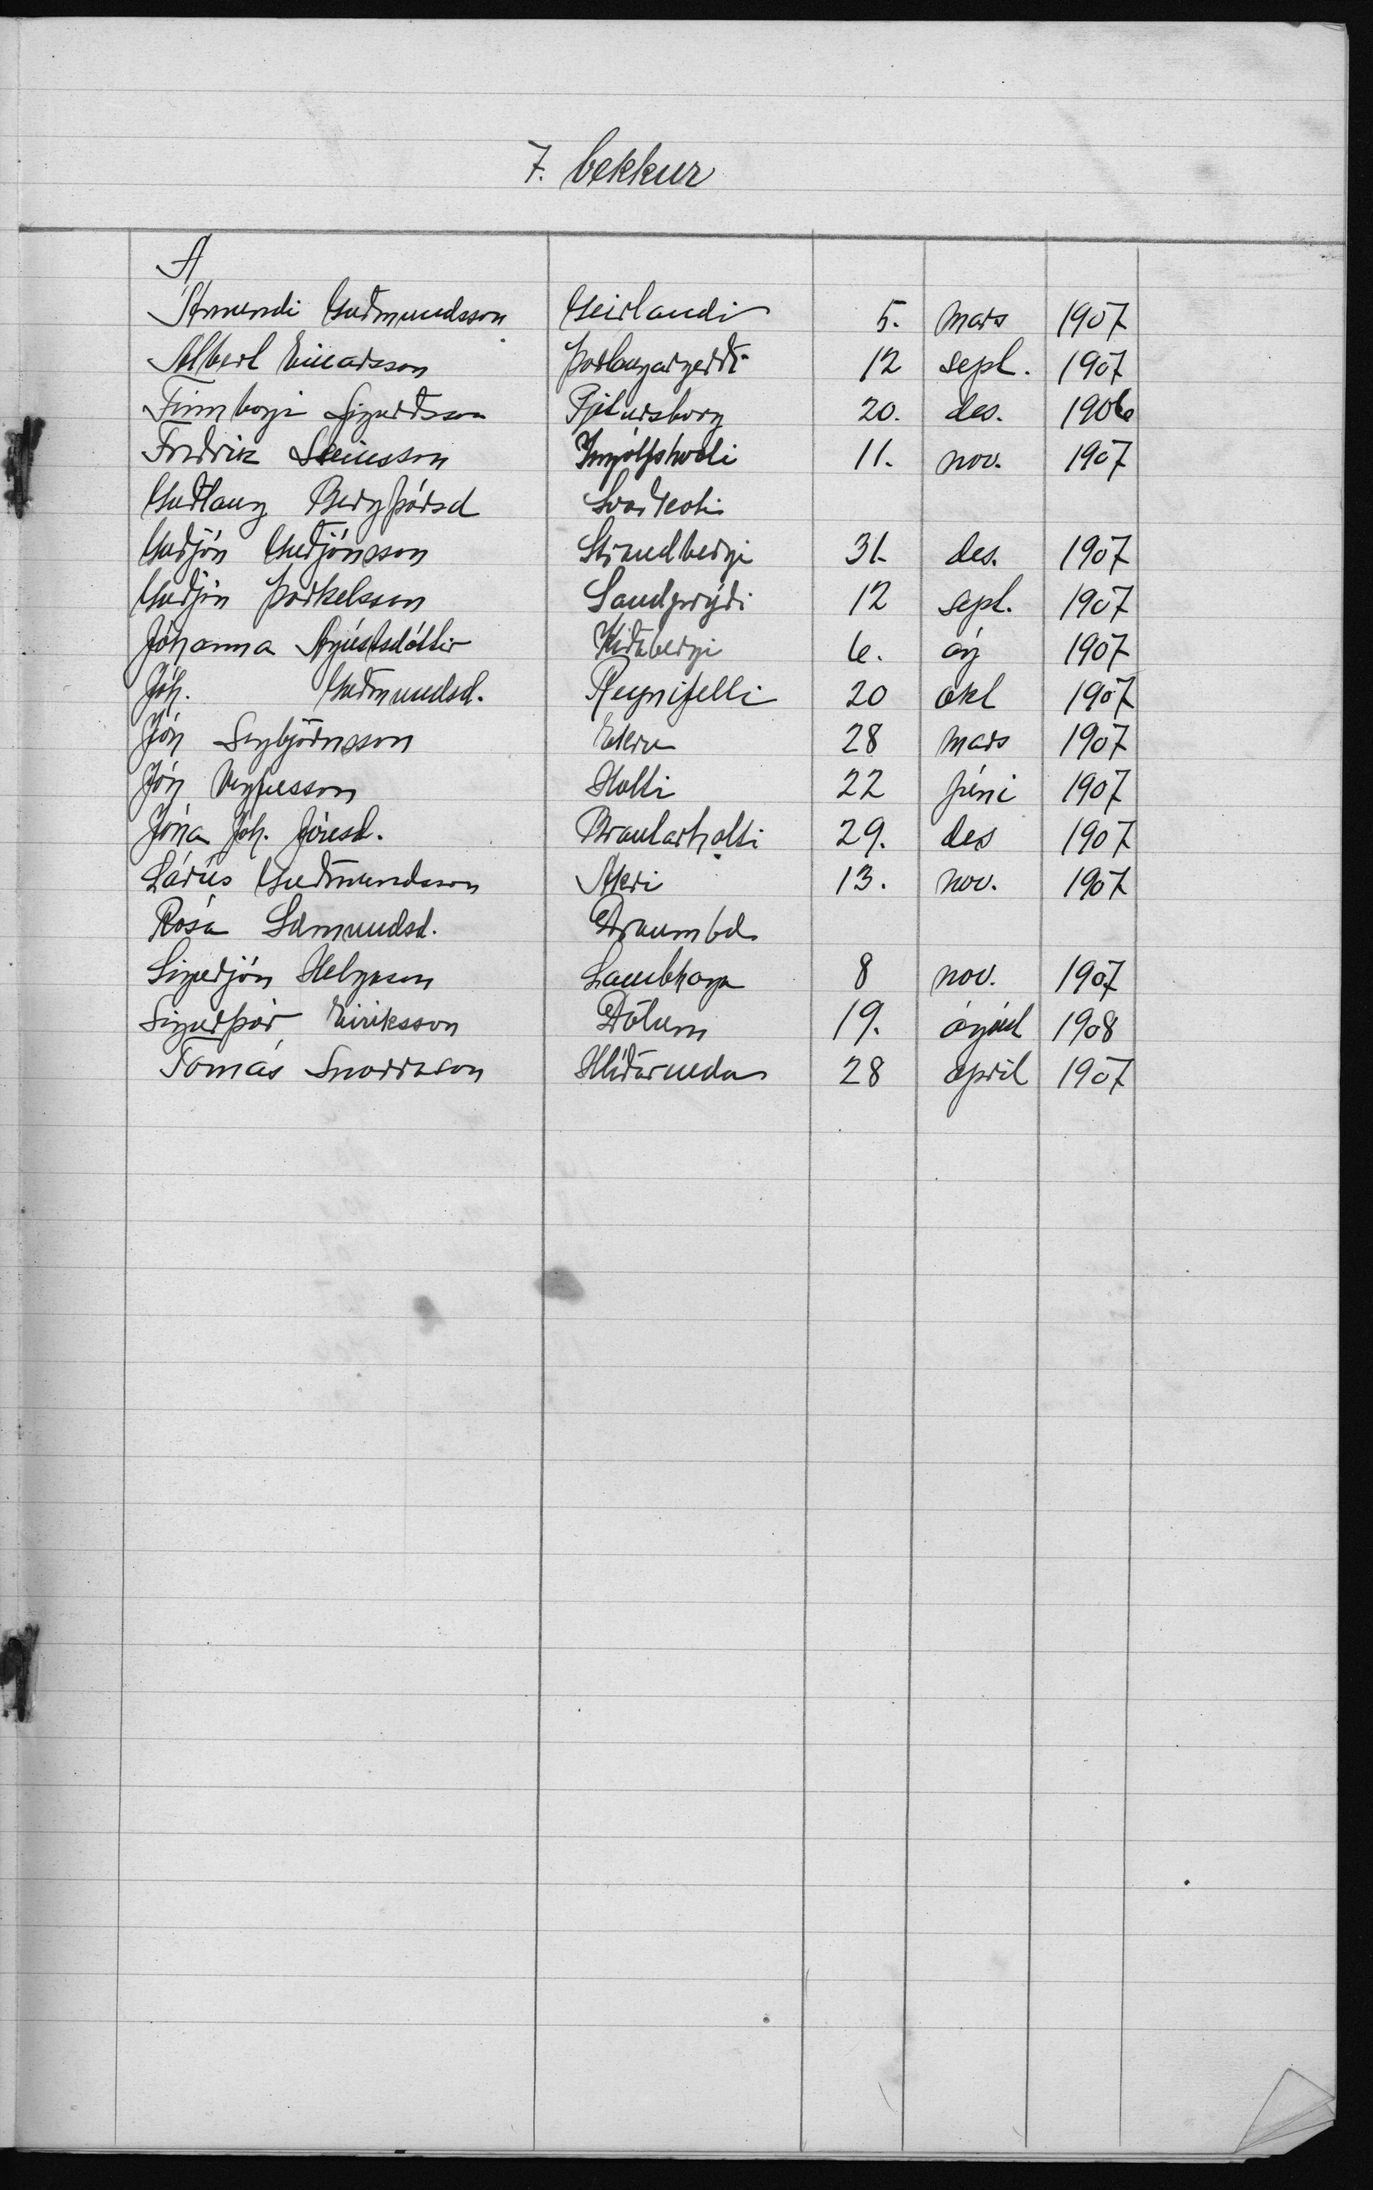 7. bekkur
A
Ámundi Guðmundsson Geirlandi 5. mars 1907
Albert Einarsson Þorlaugargerði 12 sept. 1907
Finnbogi Sigurðsson Pjetursborg 20. des. 1906
Friðrik Steinsson Ingólfshvoli 11. nov. 1907
Guðlaug Bergþórsd
Guðjón Guðjónsson Strandbergi 31. des. 1907
Guðjón Þorkelsson Sandprýði 12 sept. 1907
Jóhanna Ágústsdóttir Kiðabergi 6. ág 1907
Jóh. Guðmundsd. Reynifelli 20 okt 1907
Jón Sigbjörnsson Ekru 28 mars 1907
Jón Magnússon Holti 22 júni 1907
Jóna Jóh. Jónsd. Brautarholti 29. des 1907
Lárus Guðmundsson Akri 13. nov. 1907
Rósa Edmundsd. Draumbæ
Sigurjón Helgason Lambhaga 8 nov. 1907
Sigurþór Eiríksson Dölum 19. ágúst 1908
Tomás Snorrason Hlíðarenda 28 apríl 1907